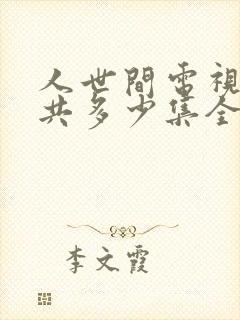 人世間電視
共多少集全
李文霞